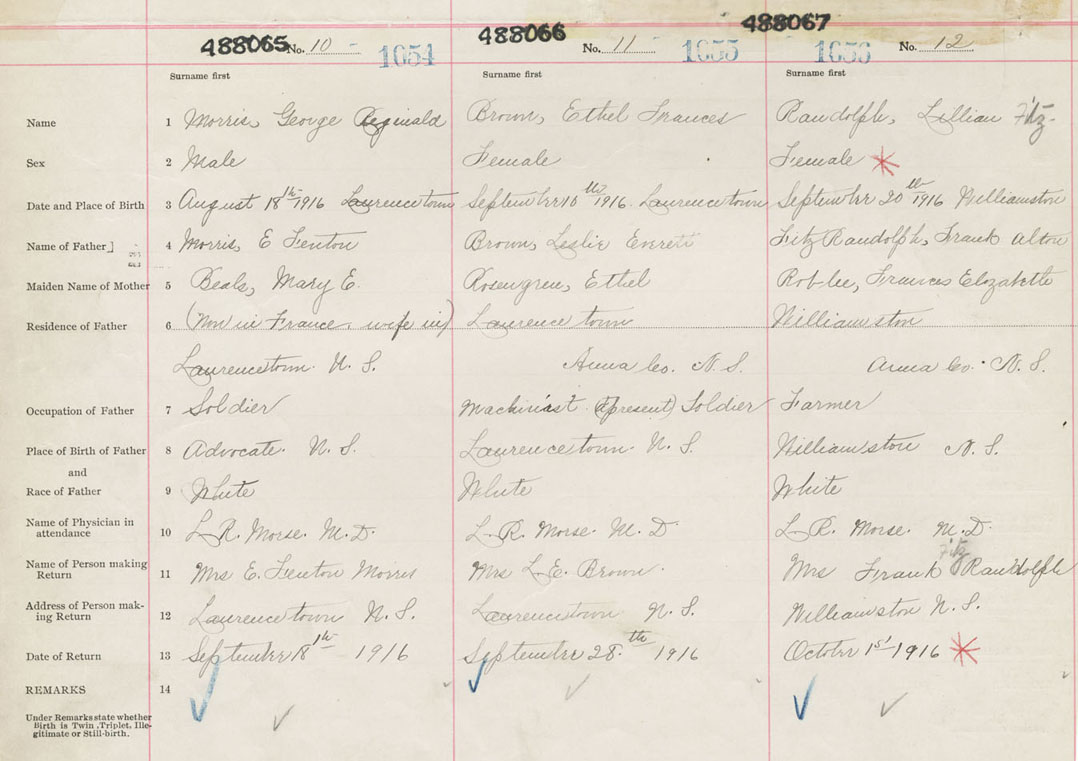 488065 No. 10 - 1654 488066 No. 11 - 1655 488067 1656 No. 12
Surname first Surname first Surname first
Name 1 Morris, George Reginald Brown, Ethel Frances Randolph, Lillian Fitz-
Sex 2 Male Female Female *
Date and Place of Birth 3 August 18th 1916 Laurencetown September 10th 1916. Laurencetown September 20th 1916 Williamston
Name of Father 4 Morris, E Fenton Brown, Leslie Everett Fitz Randolph, Frank Alton
Maiden Name of Mother 5 Beals, Mary E. Rosengren, Ethel Roblee, Frances Elizabeth
Residence of Father 6 (Now in France. wife in) Laurencetown Williamston
Laurencetown N. S. Anna Co. N. S. Anna Co. N. S.
Occupation of Father 7 Soldier Machinist (present) Soldier Farmer
Place of Birth of Father 8 Advocate. N. S. Laurencetown N. S. Williamston N. S.
and
Race of Father 9 White White White
Name of Physician in
attendance 10 L. R. Morse. M. D. L. R. Morse. M. D L. R. Morse. M. D
Name of Person making Fitz
Return 11 Mrs E. Fenton Morris Mrs L. E. Brown. Mrs Frank Randolph
Address of Person mak-
ing Return 12 Laurencetown N. S. Laurencetown N. S. Williamston N. S.
Date of Return 13 September 18th 1916 September 28th 1916 October 1st 1916 *
REMARKS 14
Under Remarks state whether
Birth is Twin, Triplet, Ille-
gitimate or Still-birth.